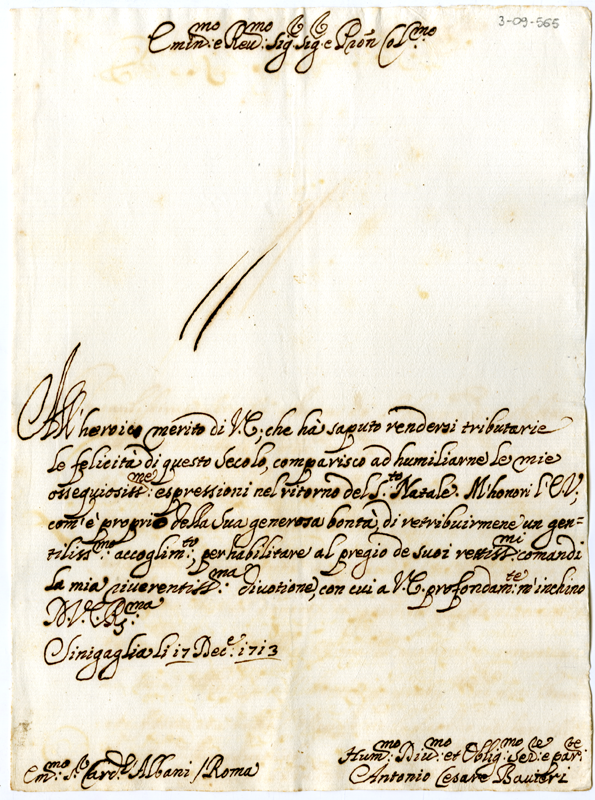 3-09-565
Emin:mo e Rev:mo Sig:r Sig:r e Pron Col:mo
All'heroico merito di V.E; che hà saputo rendersi tributarie
le felicità di questo Secolo, comparisco ad humiliarne le mie
ossequiosiss:me espressioni nel ritorno del S.to Natale. M'honori l'E.V;
com'è proprio della Sua generosa bontà, di retribuirmene un gen=
tiliss:mo accoglim:to, per habilitare al pregio de suoi veneratiss:mi comandi
la mia riverentiss:ma divotione, con cui a V.E. profondam:te m'inchino
D.V.E. R:ma
Sinigaglia li 17 Dec.e 1713
Em:mo S.r Card.l Albani / Roma
Hum:mo Div:mo et Oblig:mo Ser:re e par:te
Antonio Cesare Bavieri